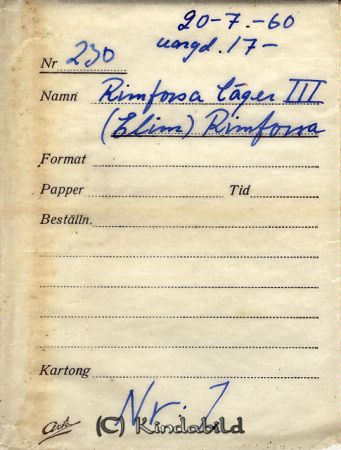 20-7.-60
ungd. 17-
Nr 230
Namn Rimforsa Läger III
(Elim) Rimforsa
Format
Papper Tid
Beställn.
Kartong
Nr. 7
Ark (C) Kindabild